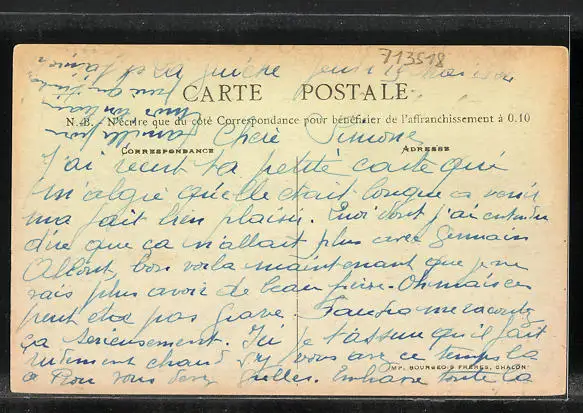 713518
la Guiche Jeudi 19 Mai
CARTE POSTALE
N.-B. - N'écrire que du côté Correspondance pour bénéficier de l'affranchissement à 0.10
famille pour
Chère Simone
CORRESPONDANCE
ADRESSE
J'ai recut ta petite carte qui
m'algré qu'elle était longue a venir
ma fait bien plaisir. Quoi dont j'ai entendu
dire que ça n'allait plus avec Germain
bon voila maintenant que je ne
vais plus avoir de beau frère. Oh mais ce
peut etre pas grave. Faudra me raconter
ça serieusement. Ici je t'assure qu'il fait
rudement chaud si vous avez ce temps la
a vous serez grillés. Embrasse toute la
IMP. BOURGEOIS FRÈRES, CHALON